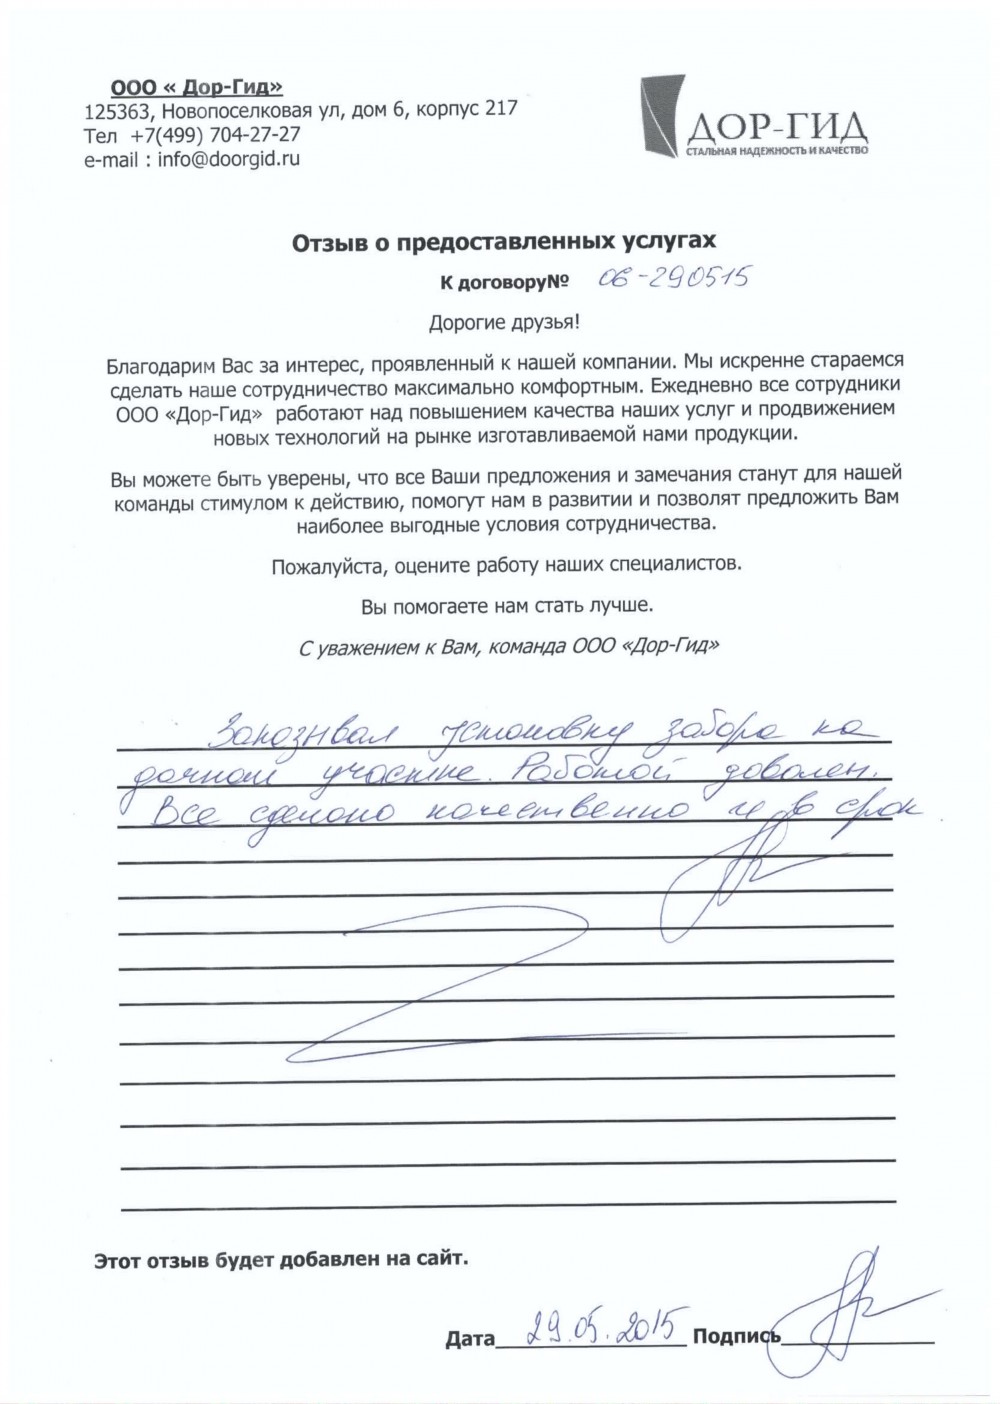 ООО « Дор-Гид»
125363, Новопоселковая ул, дом 6, корпус 217
Тел +7(499) 704-27-27
e-mail : info@doorgid.ru
ДОР-ГИД
СТАЛЬНАЯ НАДЕЖНОСТЬ И КАЧЕСТВО
Отзыв о предоставленных услугах
К договору№ 06-290515
Дорогие друзья!
Благодарим Вас за интерес, проявленный к нашей компании. Мы искренне стараемся
сделать наше сотрудничество максимально комфортным. Ежедневно все сотрудники
ООО «Дор-Гид» работают над повышением качества наших услуг и продвижением
новых технологий на рынке изготавливаемой нами продукции.
Вы можете быть уверены, что все Ваши предложения и замечания станут для нашей
команды стимулом к действию, помогут нам в развитии и позволят предложить Вам
наиболее выгодные условия сотрудничества.
Пожалуйста, оцените работу наших специалистов.
Вы помогаете нам стать лучше.
С уважением к Вам, команда ООО «Дор-Гид»
Заказывал установку забора на
дачном участке. Работой доволен.
Все сделано качественно и в срок
Этот отзыв будет добавлен на сайт.
Дата 29.05.2015 Подпись